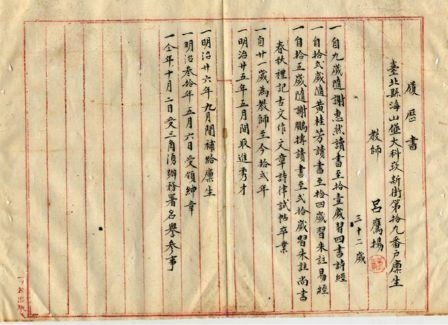 履歷書
臺北縣海山堡大科崁新街第拾九番戶廩生
教師 呂鷹揚
三十二歲
一自九歲隨謝惠然讀書至拾壹歲習四書詩經
一自拾貳歲隨黃桂芳讀書至拾四歲習朱註易經
一自拾五歲隨謝鵬搏讀書至貳拾歲習朱註尚書
春秋禮記古文作文章詩律試帖卒業
一自廿一歲為教師至今拾貳年
一明治廿五年五月間取進秀才
一明治廿六年九月間補給廩生
一明治叁拾年五月六日受領紳章
一仝年十月二日受三角湧辦務署名譽參事